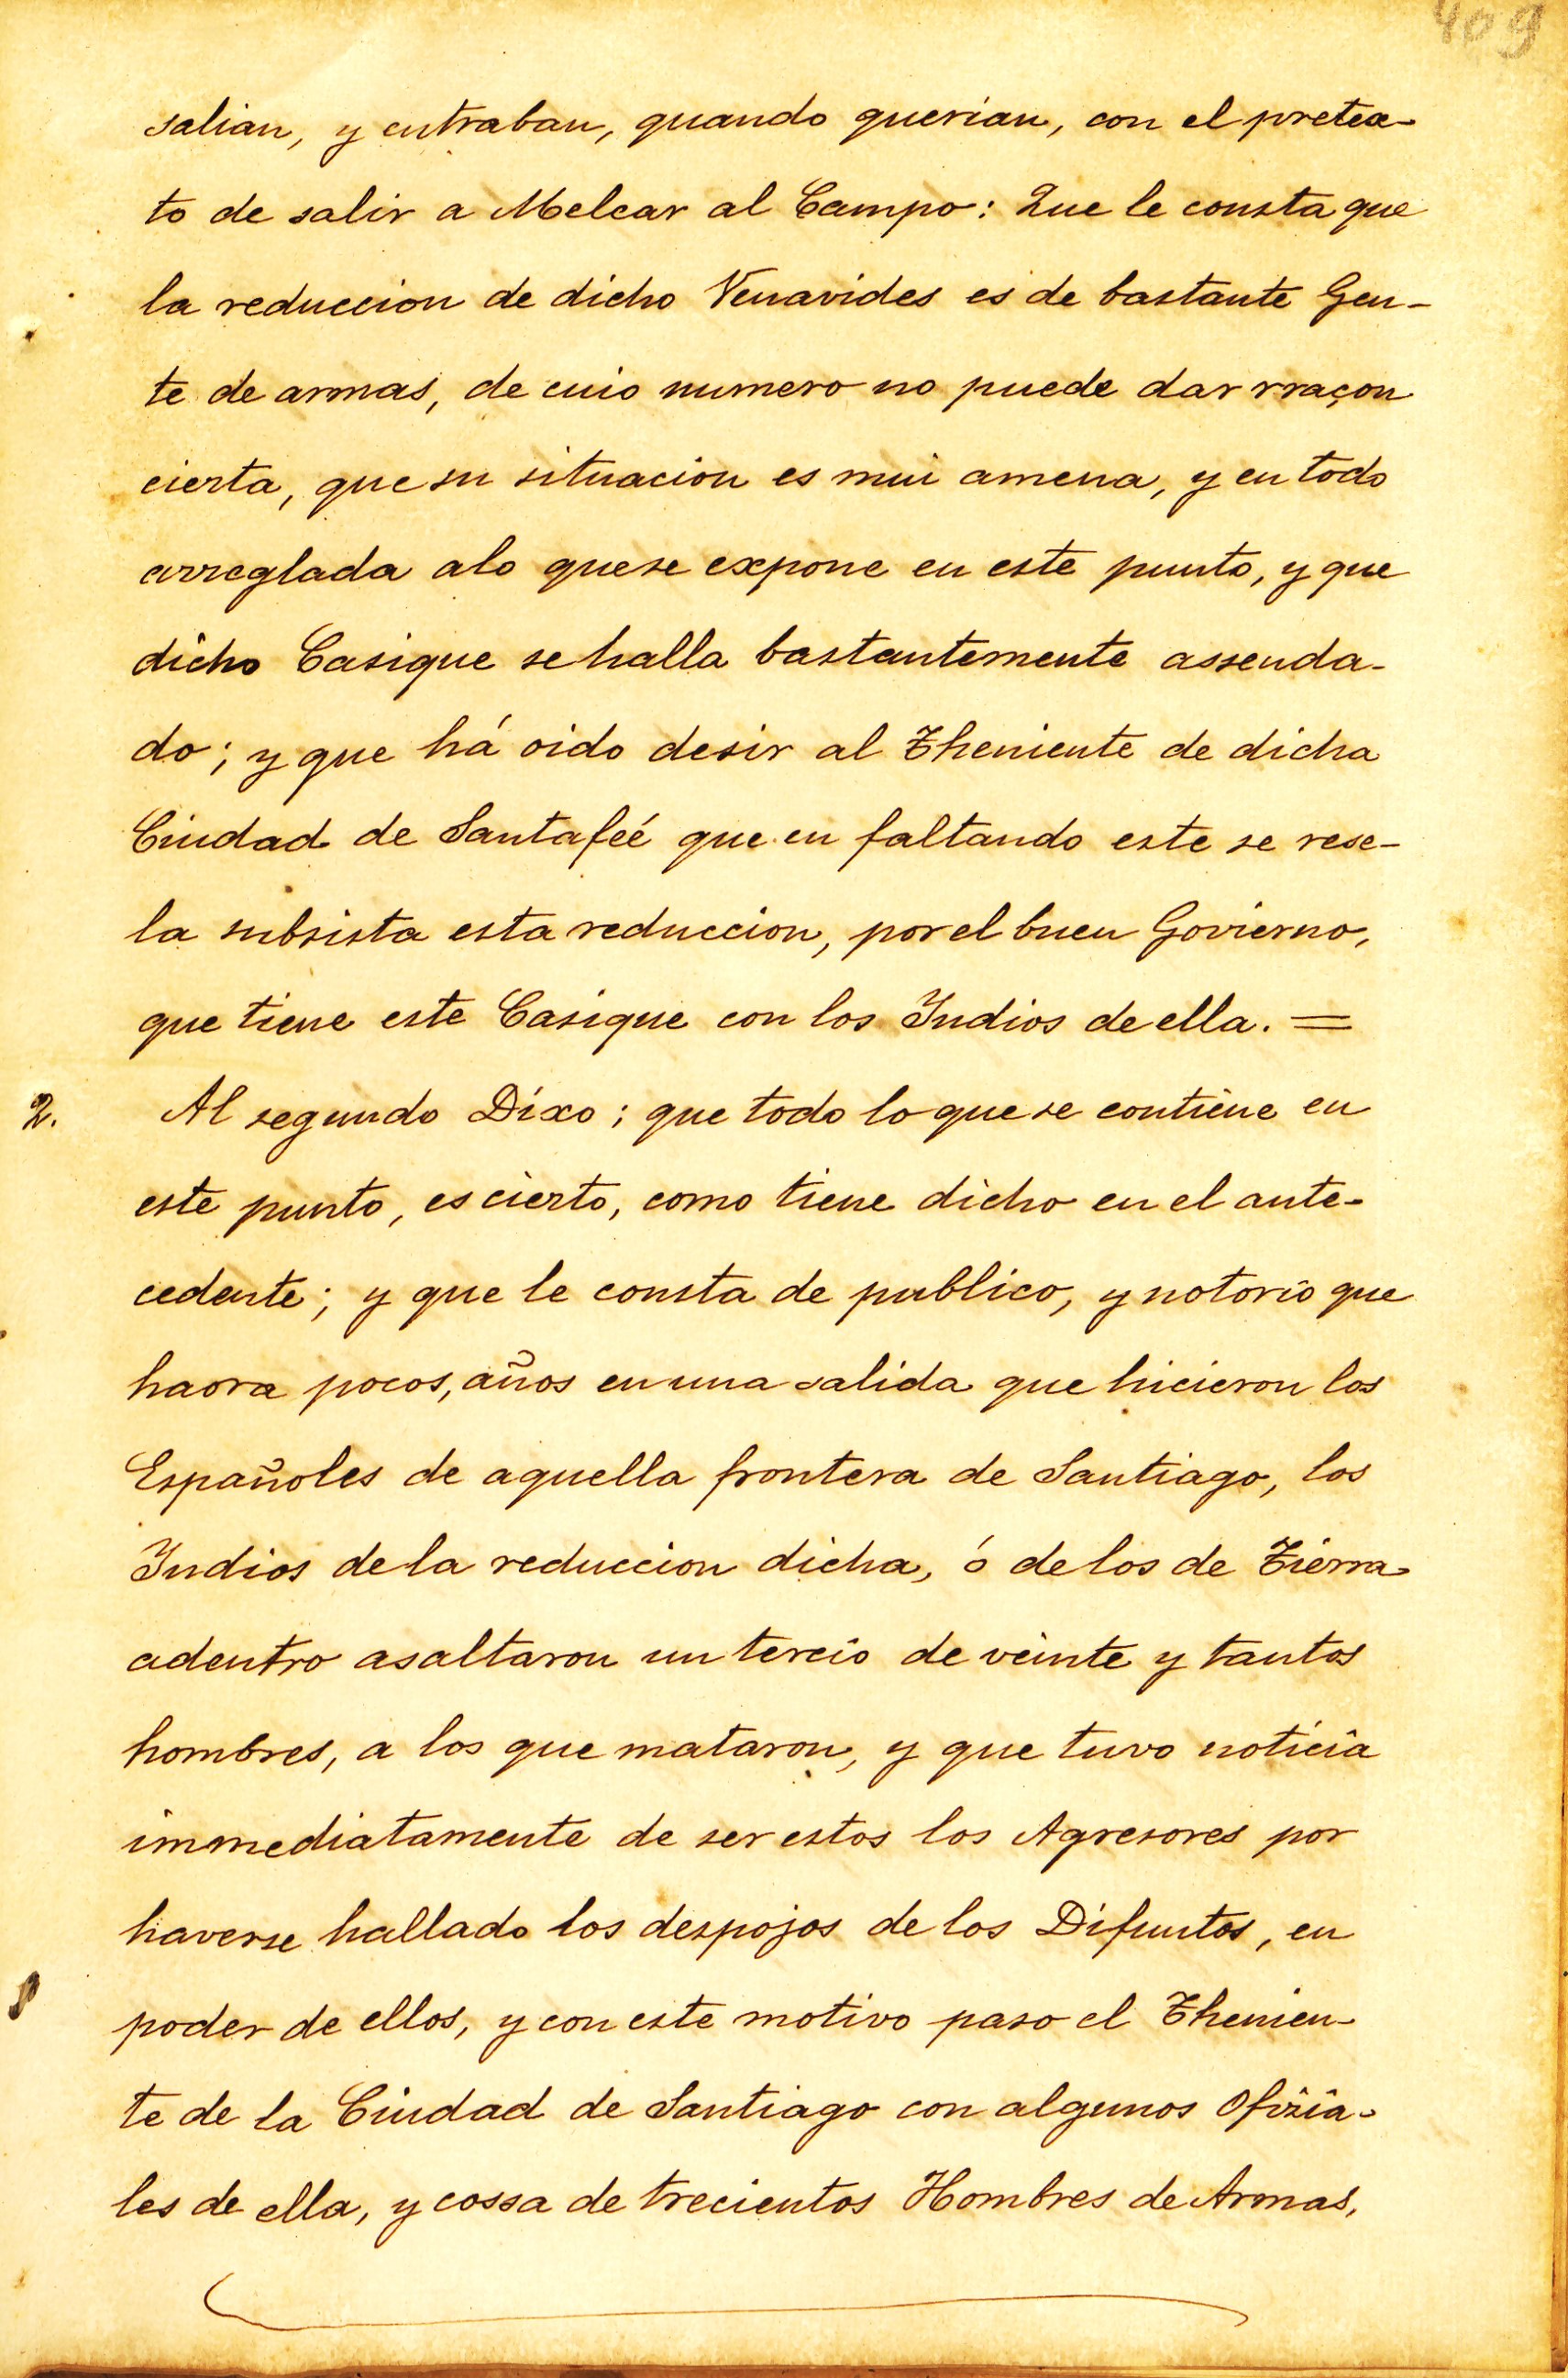 409
salian, y entraban, quando querian, con el pretex-
to de salir a Melear al Campo: Que le consta que
la reduccion de dicho Venavides es de bastante Gen-
te de armas, de cuio numero no puede dar rraçon
cierta, que su situacion es mui amena, y en todo
arreglada alo quese expone en este punto, y que
dicho Casique se halla bastantemente assenda-
do; y que há oido desir al Theniente de dicha
Ciudad de Santafeé que en faltando este se rese-
la subsista esta reduccion, por el buen Govierno,
que tiene este Casique con los Indios de ella. =
2. Al segundo Dixo; que todo lo que se contiene en
este punto, es cierto, como tiene dicho en el ante-
cedente; y que le consta de publico, y notorio que
haora pocos, años en una salida que hicieron los
Españoles de aquella frontera de Santiago, los
Indios de la reduccion dicha, ó de los de Tierra
adentro asaltaron un tercio de veinte y tantos
hombres, a los que mataron, y que tuvo noticia
immediatamente de ser estos los Agresores por
haverse hallado los despojos de los Difuntos, en
poder de ellos, y con este motivo paso el Thenien-
te de la Ciudad de Santiago con algunos Ofizia-
les de ella, y cossa de trecientos Hombres de Armas,